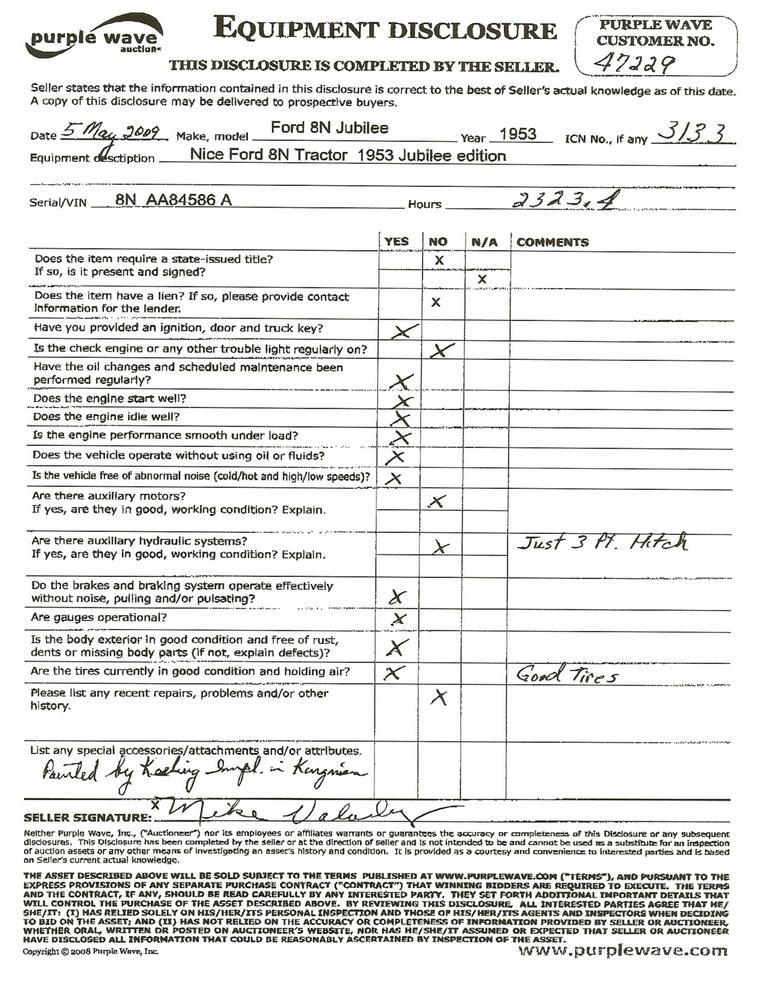 purple wave
auction
EQUIPMENT DISCLOSURE
PURPLE WAVE
CUSTOMER NO.
47229
THIS DISCLOSURE IS COMPLETED BY THE SELLER.
Seller states that the information contained in this disclosure is correct to the best of Seller's actual knowledge as of this date.
A copy of this disclosure may be delivered to prospective buyers.
Date 5 May 2009 Make, model Ford 8N Jubilee Year 1953 ICN No., if any 3133
Equipment desctiption Nice Ford 8N Tractor 1953 Jubilee edition
Serial/VIN 8N AA84586 A Hours 2323.4
YES NO N/A COMMENTS
Does the item require a state-issued title? X
If so, is it present and signed? X
Does the item have a lien? If so, please provide contact
information for the lender. X
Have you provided an ignition, door and truck key? X
Is the check engine or any other trouble light regularly on? X
Have the oil changes and scheduled maintenance been
performed regularly? X
Does the engine start well? X
Does the engine idle well? X
Is the engine performance smooth under load? X
Does the vehicle operate without using oil or fluids? X
Is the vehicle free of abnormal noise (cold/hot and high/low speeds)? X
Are there auxiliary motors? X
If yes, are they in good, working condition? Explain.
Are there auxiliary hydraulic systems? X Just 3 Pt. Hitch
If yes, are they in good, working condition? Explain.
Do the brakes and braking system operate effectively
without noise, pulling and/or pulsating? X
Are gauges operational? X
Is the body exterior in good condition and free of rust,
dents or missing body parts (if not, explain defects)? X
Are the tires currently in good condition and holding air? X Good Tires
Please list any recent repairs, problems and/or other
history. X
List any special accessories/attachments and/or attributes.
Painted by Impl. in
SELLER SIGNATURE: X Mike
Neither Purple Wave, Inc., ("Auctioneer") nor its employees or affiliates warrants or guarantees the accuracy or completeness of this Disclosure or any subsequent
disclosures. This Disclosure has been completed by the seller or at the direction of seller and is not intended to be and cannot be used as a substitute for an inspection
of auction assets or any other means of investigating an asset's history and condition. It is provided as a courtesy and convenience to interested parties and is based
on Seller's current actual knowledge.
THE ASSET DESCRIBED ABOVE WILL BE SOLD SUBJECT TO THE TERMS PUBLISHED AT WWW.PURPLEWAVE.COM ("TERMS"), AND PURSUANT TO THE
EXPRESS PROVISIONS OF ANY SEPARATE PURCHASE CONTRACT ("CONTRACT") THAT WINNING BIDDERS ARE REQUIRED TO EXECUTE. THE TERMS
AND THE CONTRACT, IF ANY, SHOULD BE READ CAREFULLY BY ANY INTERESTED PARTY. THEY SET FORTH ADDITIONAL IMPORTANT DETAILS THAT
WILL CONTROL THE PURCHASE OF THE ASSET DESCRIBED ABOVE. BY REVIEWING THIS DISCLOSURE, ALL INTERESTED PARTIES AGREE THAT HE/
SHE/IT: (I) HAS RELIED SOLELY ON HIS/HER/ITS PERSONAL INSPECTION AND THOSE OF HIS/HER/ITS AGENTS AND INSPECTORS WHEN DECIDING
TO BID ON THE ASSET; AND (II) HAS NOT RELIED ON THE ACCURACY OR COMPLETENESS OF INFORMATION PROVIDED BY SELLER OR AUCTIONEER,
WHETHER ORAL, WRITTEN OR POSTED ON AUCTIONEER'S WEBSITE, NOR HAS HE/SHE/IT ASSUMED OR EXPECTED THAT SELLER OR AUCTIONEER
HAVE DISCLOSED ALL INFORMATION THAT COULD BE REASONABLY ASCERTAINED BY INSPECTION OF THE ASSET.
Copyright © 2008 Purple Wave, Inc. www.purplewave.com